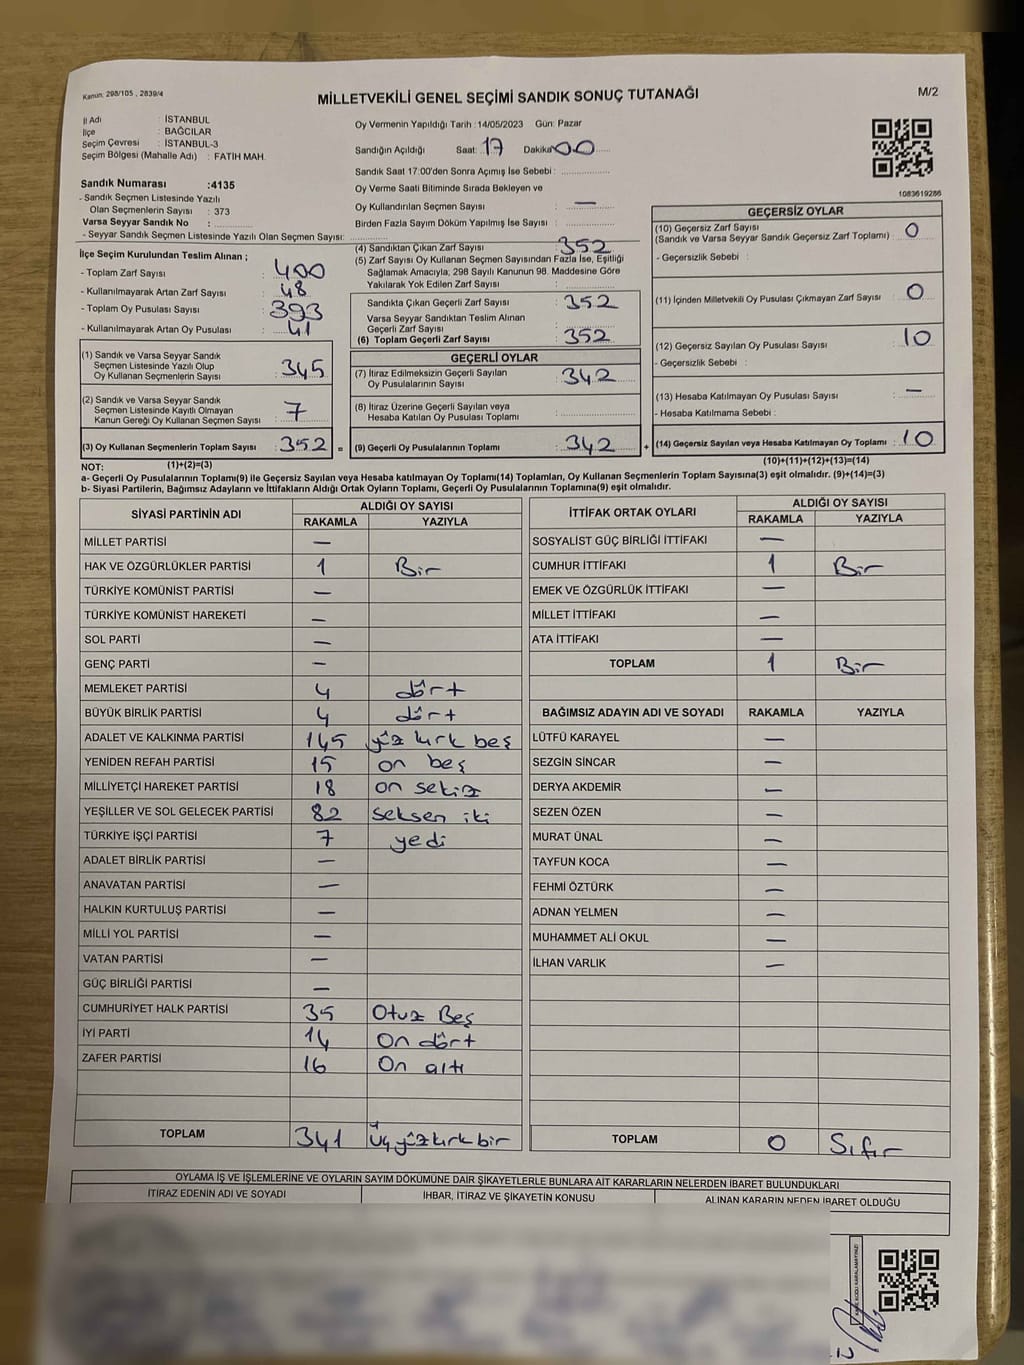 Kanun. 298/105 , 2839/4
MİLLETVEKİLİ GENEL SEÇİMİ SANDIK SONUÇ TUTANAĞI
M/2
İl Adı : İSTANBUL
İlçe : BAĞCILAR
Seçim Çevresi : İSTANBUL-3
Seçim Bölgesi (Mahalle Adı) : FATİH MAH.
Oy Vermenin Yapıldığı Tarih : 14/05/2023 Gün: Pazar
Sandığın Açıldığı Saat: 17 Dakika 00
Sandık Saat 17:00'den Sonra Açımış İse Sebebi :
Oy Verme Saati Bitiminde Sırada Bekleyen ve
Oy Kullandırılan Seçmen Sayısı : —
Birden Fazla Sayım Döküm Yapılmış İse Sayısı :
1083619286
Sandık Numarası :4135
- Sandık Seçmen Listesinde Yazılı
Olan Seçmenlerin Sayısı : 373
Varsa Seyyar Sandık No :
- Seyyar Sandık Seçmen Listesinde Yazılı Olan Seçmen Sayısı:
İlçe Seçim Kurulundan Teslim Alınan ;
- Toplam Zarf Sayısı : 400
- Kullanılmayarak Artan Zarf Sayısı : 48
- Toplam Oy Pusulası Sayısı : 393
- Kullanılmayarak Artan Oy Pusulası : 41
(1) Sandık ve Varsa Seyyar Sandık
Seçmen Listesinde Yazılı Olup
Oy Kullanan Seçmenlerin Sayısı : 345
(2) Sandık ve Varsa Seyyar Sandık
Seçmen Listesinde Kayıtlı Olmayan
Kanun Gereği Oy Kullanan Seçmen Sayısı : 7
(3) Oy Kullanan Seçmenlerin Toplam Sayısı : 352 =
(1)+(2)=(3)
(4) Sandıktan Çıkan Zarf Sayısı : 352
(5) Zarf Sayısı Oy Kullanan Seçmen Sayısından Fazla İse, Eşitliği
Sağlamak Amacıyla, 298 Sayılı Kanunun 98. Maddesine Göre
Yakılarak Yok Edilen Zarf Sayısı :
Sandıkta Çıkan Geçerli Zarf Sayısı : 352
Varsa Seyyar Sandıktan Teslim Alınan
Geçerli Zarf Sayısı :
(6) Toplam Geçerli Zarf Sayısı : 352
GEÇERLİ OYLAR
(7) İtiraz Edilmeksizin Geçerli Sayılan
Oy Pusulalarının Sayısı : 342
(8) İtiraz Üzerine Geçerli Sayılan veya
Hesaba Katılan Oy Pusulası Toplamı :
(9) Geçerli Oy Pusulalarının Toplamı : 342 +
GEÇERSİZ OYLAR
(10) Geçersiz Zarf Sayısı
(Sandık ve Varsa Seyyar Sandık Geçersiz Zarf Toplamı) : 0
- Geçersizlik Sebebi :
(11) İçinden Milletvekili Oy Pusulası Çıkmayan Zarf Sayısı : 0
(12) Geçersiz Sayılan Oy Pusulası Sayısı : 10
- Geçersizlik Sebebi :
(13) Hesaba Katılmayan Oy Pusulası Sayısı : —
- Hesaba Katılmama Sebebi :
(14) Geçersiz Sayılan veya Hesaba Katılmayan Oy Toplamı : 10
(10)+(11)+(12)+(13)=(14)
NOT:
a- Geçerli Oy Pusulaları Toplamı(9) ile Geçersiz Sayılan veya Hesaba katılmayan Oy Toplamı(14) Toplamları, Oy Kullanan Seçmenlerin Toplam Sayısına(3) eşit olmalıdır. (9)+(14)=(3)
b- Siyasi Partilerin, Bağımsız Adayların ve İttifakların Aldığı Ortak Oyların Toplamı, Geçerli Oy Pusulalarının Toplamına(9) eşit olmalıdır.
SİYASİ PARTİNİN ADI ALDIĞI OY SAYISI
RAKAMLA YAZIYLA
MİLLET PARTİSİ —
HAK VE ÖZGÜRLÜKLER PARTİSİ 1 Bir
TÜRKİYE KOMÜNİST PARTİSİ —
TÜRKİYE KOMÜNİST HAREKETİ —
SOL PARTİ —
GENÇ PARTİ —
MEMLEKET PARTİSİ 4 dört
BÜYÜK BİRLİK PARTİSİ 4 dört
ADALET VE KALKINMA PARTİSİ 145 yüz kırk beş
YENİDEN REFAH PARTİSİ 15 on beş
MİLLİYETÇİ HAREKET PARTİSİ 18 on sekiz
YEŞİLLER VE SOL GELECEK PARTİSİ 82 seksen iki
TÜRKİYE İŞÇİ PARTİSİ 7 yedi
ADALET BİRLİK PARTİSİ —
ANAVATAN PARTİSİ —
HALKIN KURTULUŞ PARTİSİ —
MİLLİ YOL PARTİSİ —
VATAN PARTİSİ —
GÜÇ BİRLİĞİ PARTİSİ —
CUMHURİYET HALK PARTİSİ 35 Otuz Beş
İYİ PARTİ 14 On dört
ZAFER PARTİSİ 16 On altı
TOPLAM 341 Üç yüz kırk bir
İTTİFAK ORTAK OYLARI ALDIĞI OY SAYISI
RAKAMLA YAZIYLA
SOSYALİST GÜÇ BİRLİĞİ İTTİFAKI —
CUMHUR İTTİFAKI 1 Bir
EMEK VE ÖZGÜRLÜK İTTİFAKI —
MİLLET İTTİFAKI —
ATA İTTİFAKI —
TOPLAM 1 Bir
BAĞIMSIZ ADAYIN ADI VE SOYADI RAKAMLA YAZIYLA
LÜTFÜ KARAYEL —
SEZGİN SİNCAR —
DERYA AKDEMİR —
SEZEN ÖZEN —
MURAT ÜNAL —
TAYFUN KOCA —
FEHMİ ÖZTÜRK —
ADNAN YELMEN —
MUHAMMET ALİ OKUL —
İLHAN VARLIK —
TOPLAM 0 Sıfır
OYLAMA İŞ VE İŞLEMLERİNE VE OYLARIN SAYIM DÖKÜMÜNE DAİR ŞİKAYETLERLE BUNLARA AİT KARARLARIN NELERDEN İBARET BULUNDUKLARI
İTİRAZ EDENİN ADI VE SOYADI İHBAR, İTİRAZ VE ŞİKAYETİN KONUSU ALINAN KARARIN NEDEN İBARET OLDUĞU